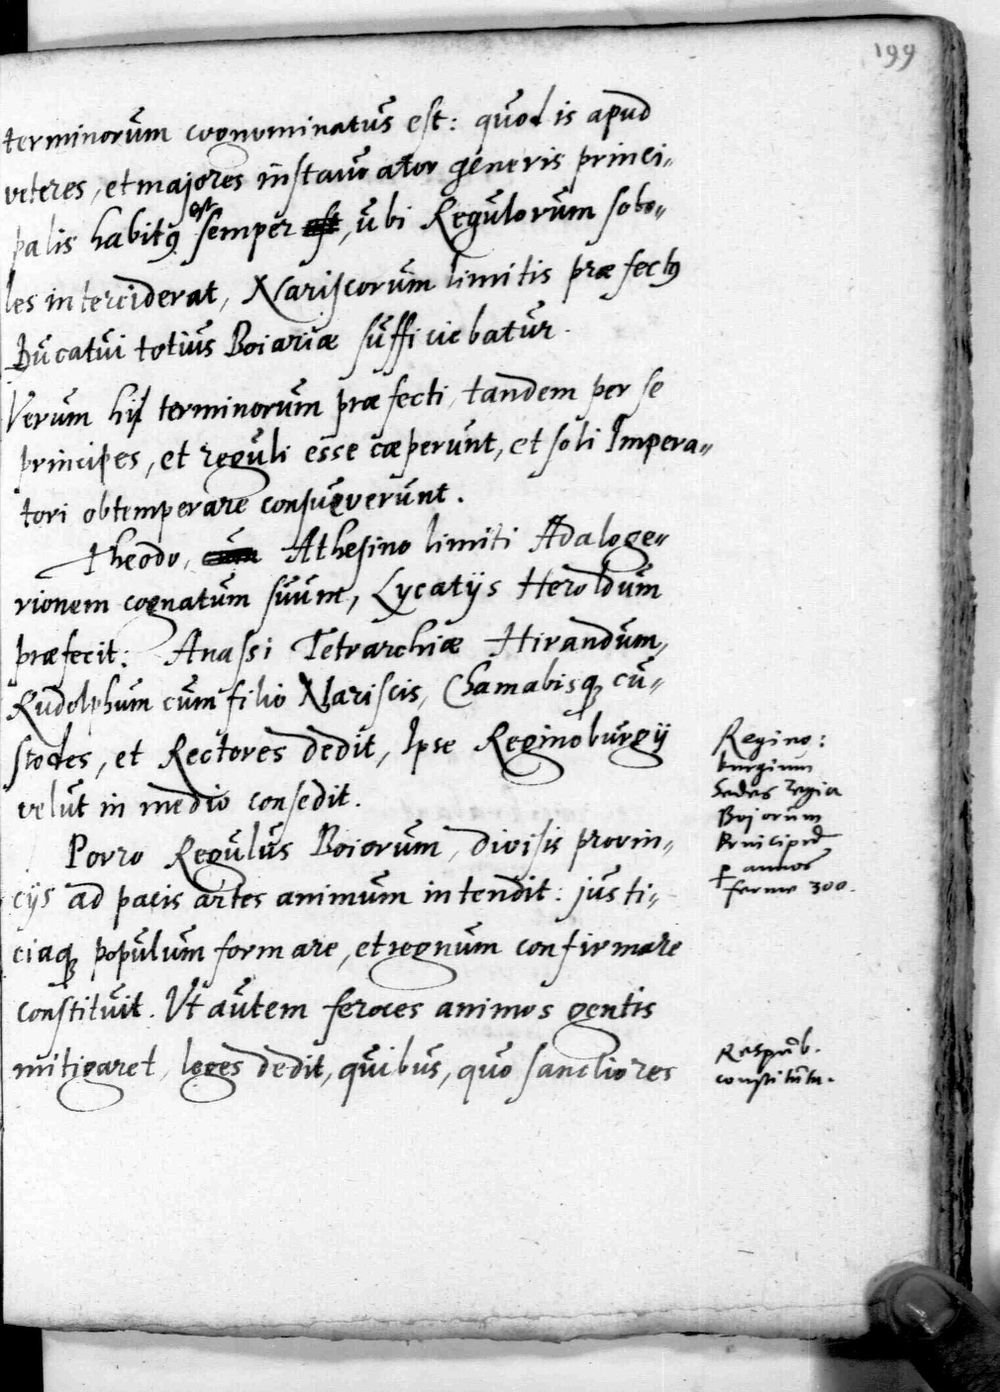 199
terminorum cognominatus est: quod is apud
veteres, et majores instaurator generis princi„
palis habitus est semper est, ubi Regulorum sobo„
les interciderat, Nariscorum limitis præfectus
Ducatui totius Boiariæ sufficiebatur.
Verum hi terminorum præfecti, tandem per se
principes, et reguli esse cæperunt, et soli Impera„
tori obtemperare consueverunt.
Theodo, Athesino limiti Adaloge„
rionem cognatum suum, Lycatijs Heroldum
præfecit: Anassi Tetrarchiæ Hirandum,
Rudolphum cum filio Nariscis, Chamabisq; cu„
stodes, et Rectores dedit, Ipse Reginoburgij
velut in medio consedit.
Porro Regulus Boiorum, divisis provin„
cijs ad pacis artes animum intendit: justi„
ciaq; populum formare, et regnum confirmare
constituit. Ut autem feroces animos gentis
mitigaret, leges dedit, quibus, quo sanctiores
Regino:
burgium
Sedes regia
Bojorum
Principum
p annos
ferme 300.
Respub.
constituta.